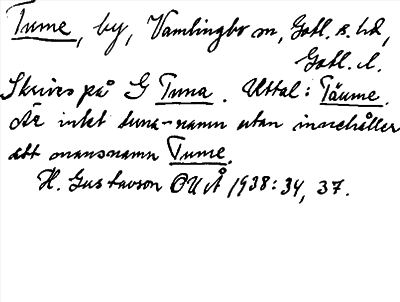 Tume, by, Vamlingbo sn, Gotl. s. hd,
Gotl. l.
Skrives på G Tuna. Uttal: Täume.
Är intet tuna-namn utan innehåller
ett mansnamn Tume.
H. Gustavson OUÅ 1938:34, 37.